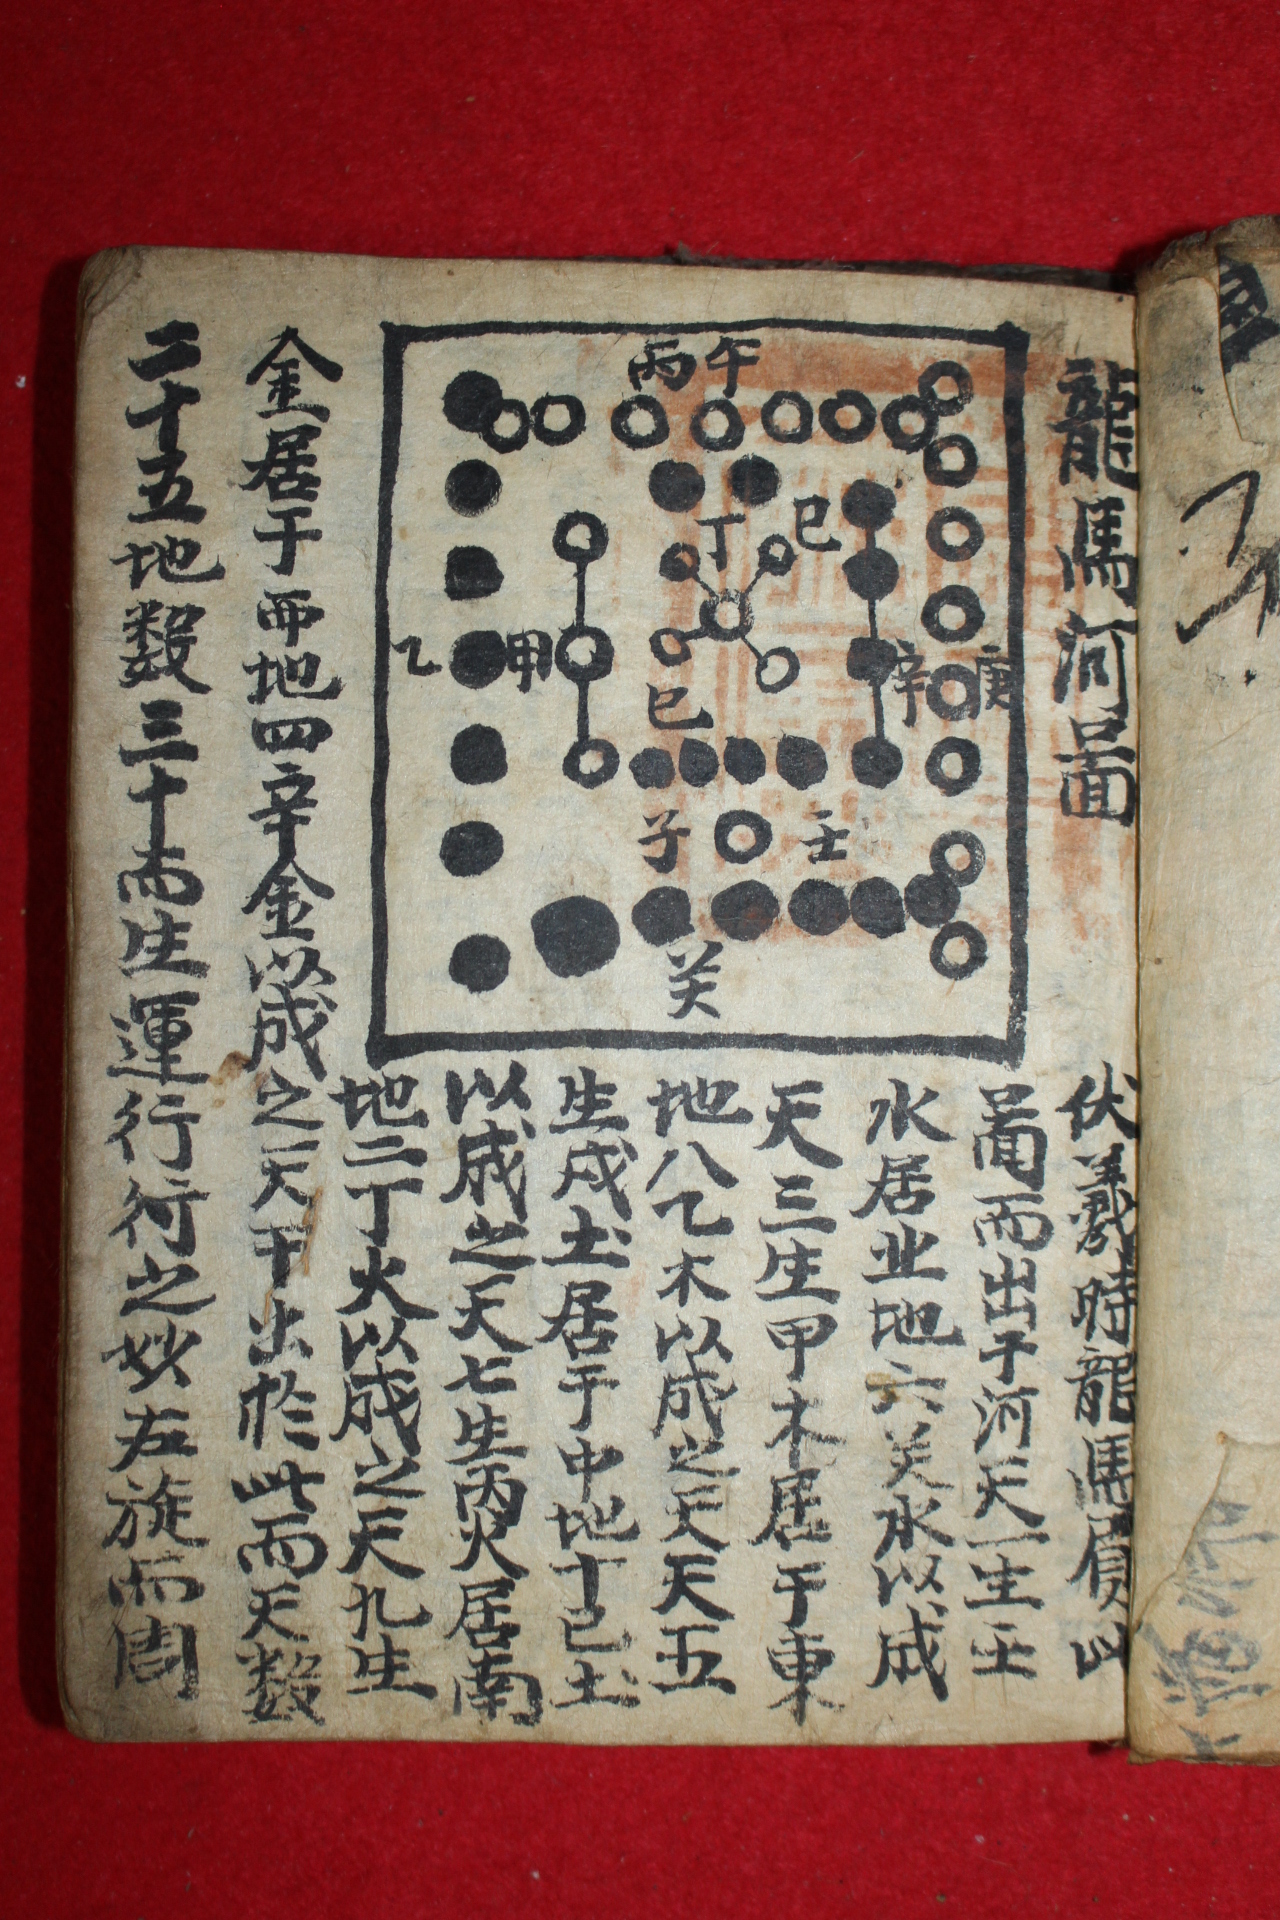 龍馬河圖
丙午
丁
巳
乙
甲
辛
庚
巳
子
壬
癸
伏羲時龍馬負此
圖而出于河天一生壬
水居北地六癸水以成
天三生甲木居于東
地八乙木以成之天天五
生戊土居于中地十己土
以成之天七生丙火居南
地二丁火以成之天九生
金居于西地四辛金以成之天干出於此而天數
二十五地數三十而生運行行之妙左旋而周